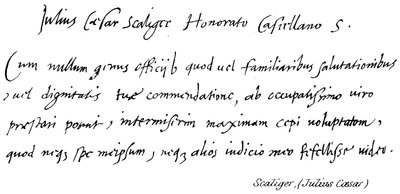 Julius Cæsar Scaliger Honorato Castellano S.
Cum nullum genus officij quod vel familiaribus salutationibus
, vel dignitatis tuæ commendatione, ab occupatissimo viro
præstari potuit, intermiserim maximam cepi voluptatem,
quod neq; spe meipsum, neq; alios iudicio meo fefellisse video.
Scaliger, (Julius Cæsar)